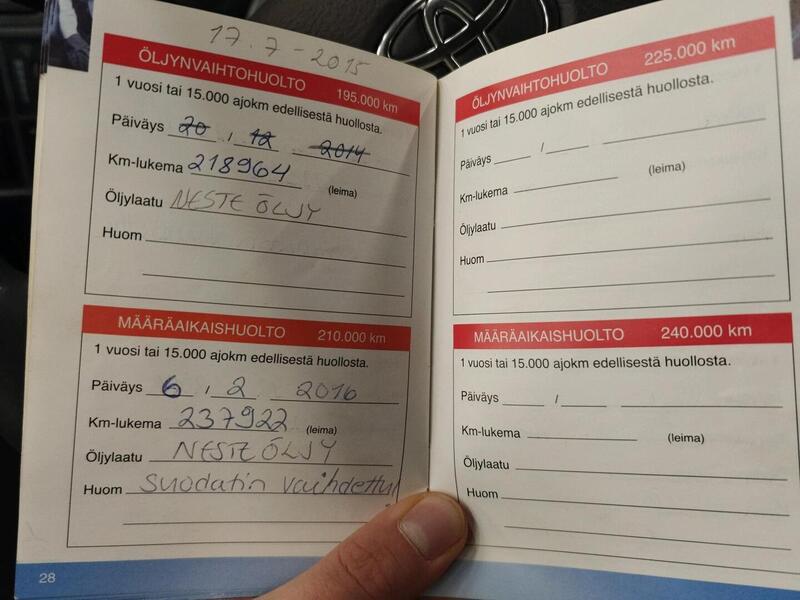 17.7-2015
ÖLJYNVAIHTOHUOLTO 195.000 km
1 vuosi tai 15.000 ajokm edellisestä huollosta.
Päiväys 20 / 12 2014
Km-lukema 218964
(leima)
Öljylaatu NESTE ÖLJY
Huom
MÄÄRÄAIKAISHUOLTO 210.000 km
1 vuosi tai 15.000 ajokm edellisestä huollosta.
Päiväys 6 / 2 2016
Km-lukema 237922 (leima)
Öljylaatu NESTE ÖLJY
Huom Suodatin vaihdettu
28
ÖLJYNVAIHTOHUOLTO 225.000 km
1 vuosi tai 15.000 ajokm edellisestä huollosta.
Päiväys /
Km-lukema (leima)
Öljylaatu
Huom
MÄÄRÄAIKAISHUOLTO 240.000 km
1 vuosi tai 15.000 ajokm edellisestä huollosta.
Päiväys /
Km-lukema (leima)
Öljylaatu
Huom